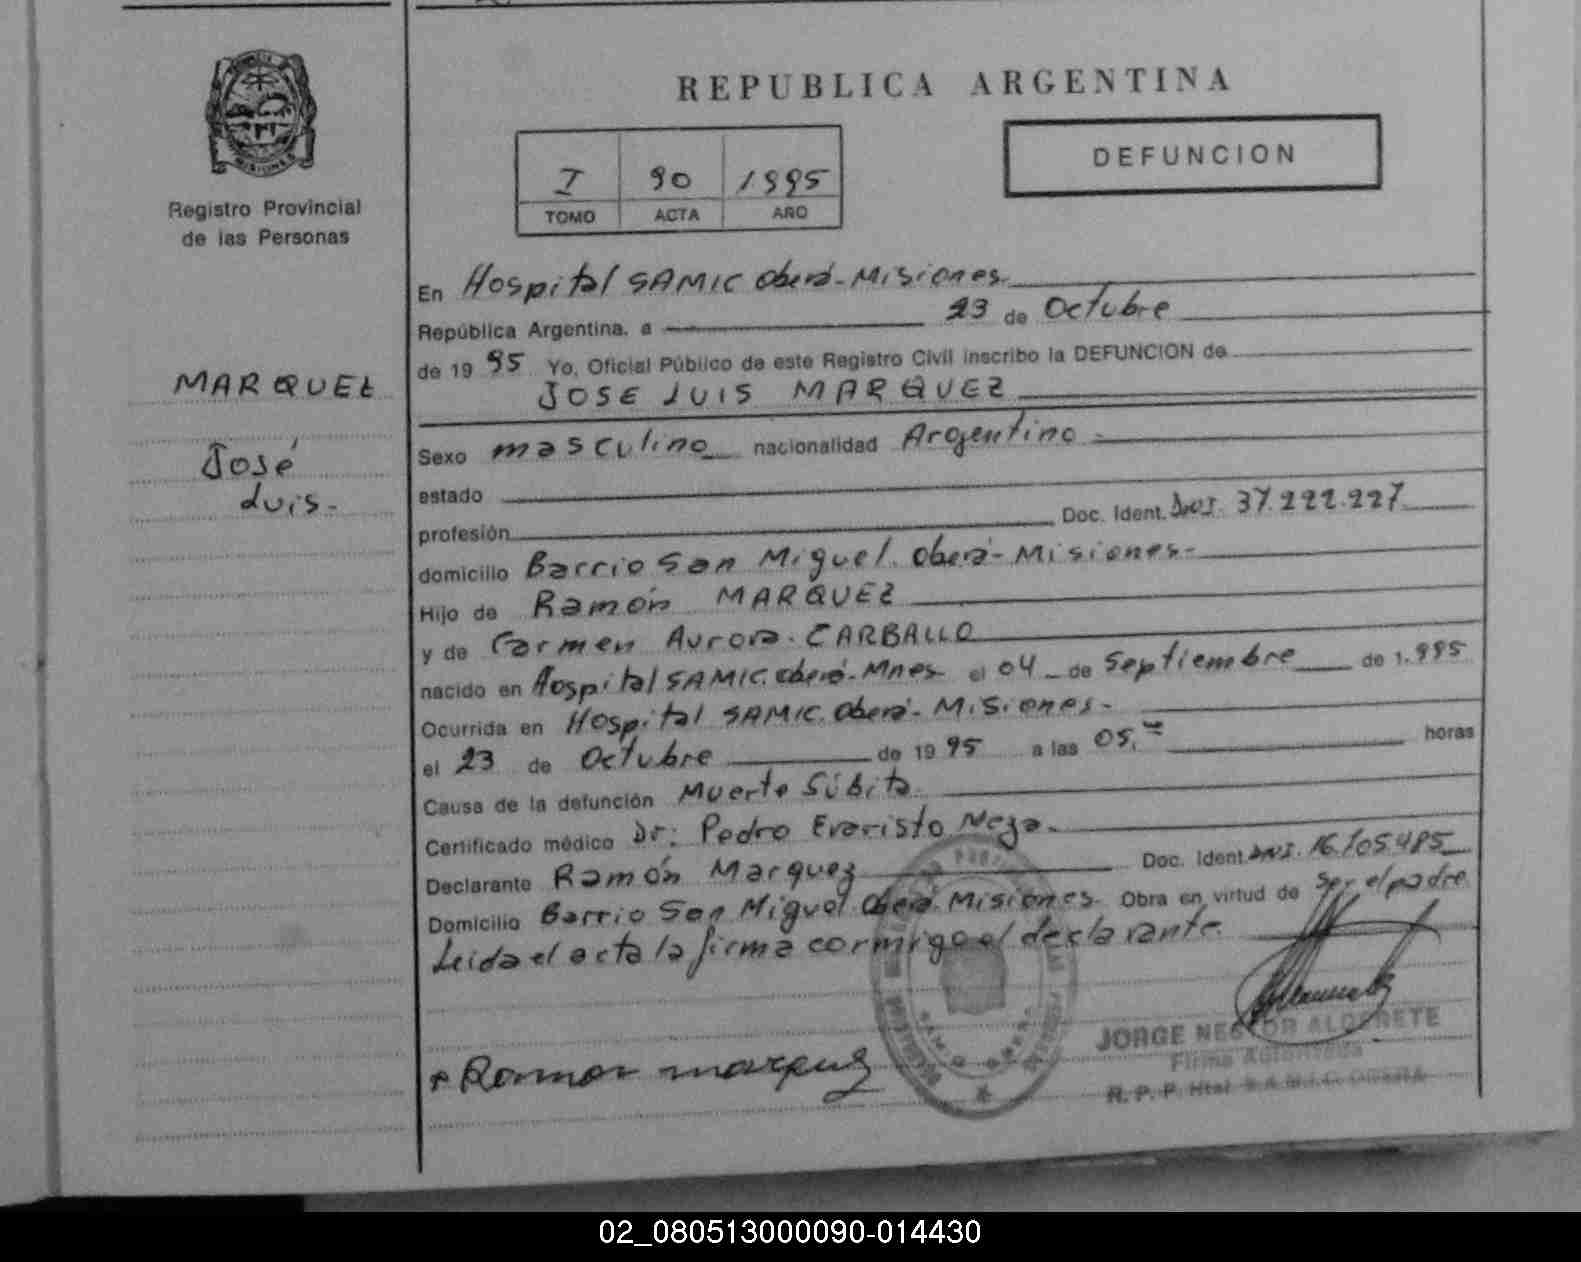 REPUBLICA ARGENTINA
MISIONES
Registro Provincial
de las Personas
I 90 1995
TOMO ACTA AÑO
DEFUNCION
MARQUEZ
José
Luis.-
En Hospital SAMIC Oberá-Misiones.
República Argentina, a 23 de Octubre
de 1995 Yo, Oficial Público de este Registro Civil inscribo la DEFUNCION de
JOSE LUIS MARQUEZ
Sexo masculino nacionalidad Argentino-
estado
profesión Doc. Ident. D.N.I. 37.222.227
domicilio Barrio San Miguel. Oberá-Misiones-
Hijo de Ramón MARQUEZ
y de Carmen Aurora. CARBALLO
nacido en Hospital SAMIC. Oberá-Mnes- el 04 de Septiembre de 1.995
Ocurrida en Hospital SAMIC. Oberá- Misiones-
el 23 de Octubre de 1995 a las 05, horas
Causa de la defunción Muerte Súbita
Certificado médico Dr: Pedro Evaristo
Declarante Ramón Marquez Doc. Ident. D.N.I. 16.105.485
Domicilio Barrio San Miguel Oberá-Misiones- Obra en virtud de ser el padre
Leida el acta la firma conmigo el declarante.
Ramon marquez
JORGE NESTOR ALDERETE
Firma Autorizada
R. P. P. Htal. S.A.M.I.C. OBERA
02_080513000090-014430